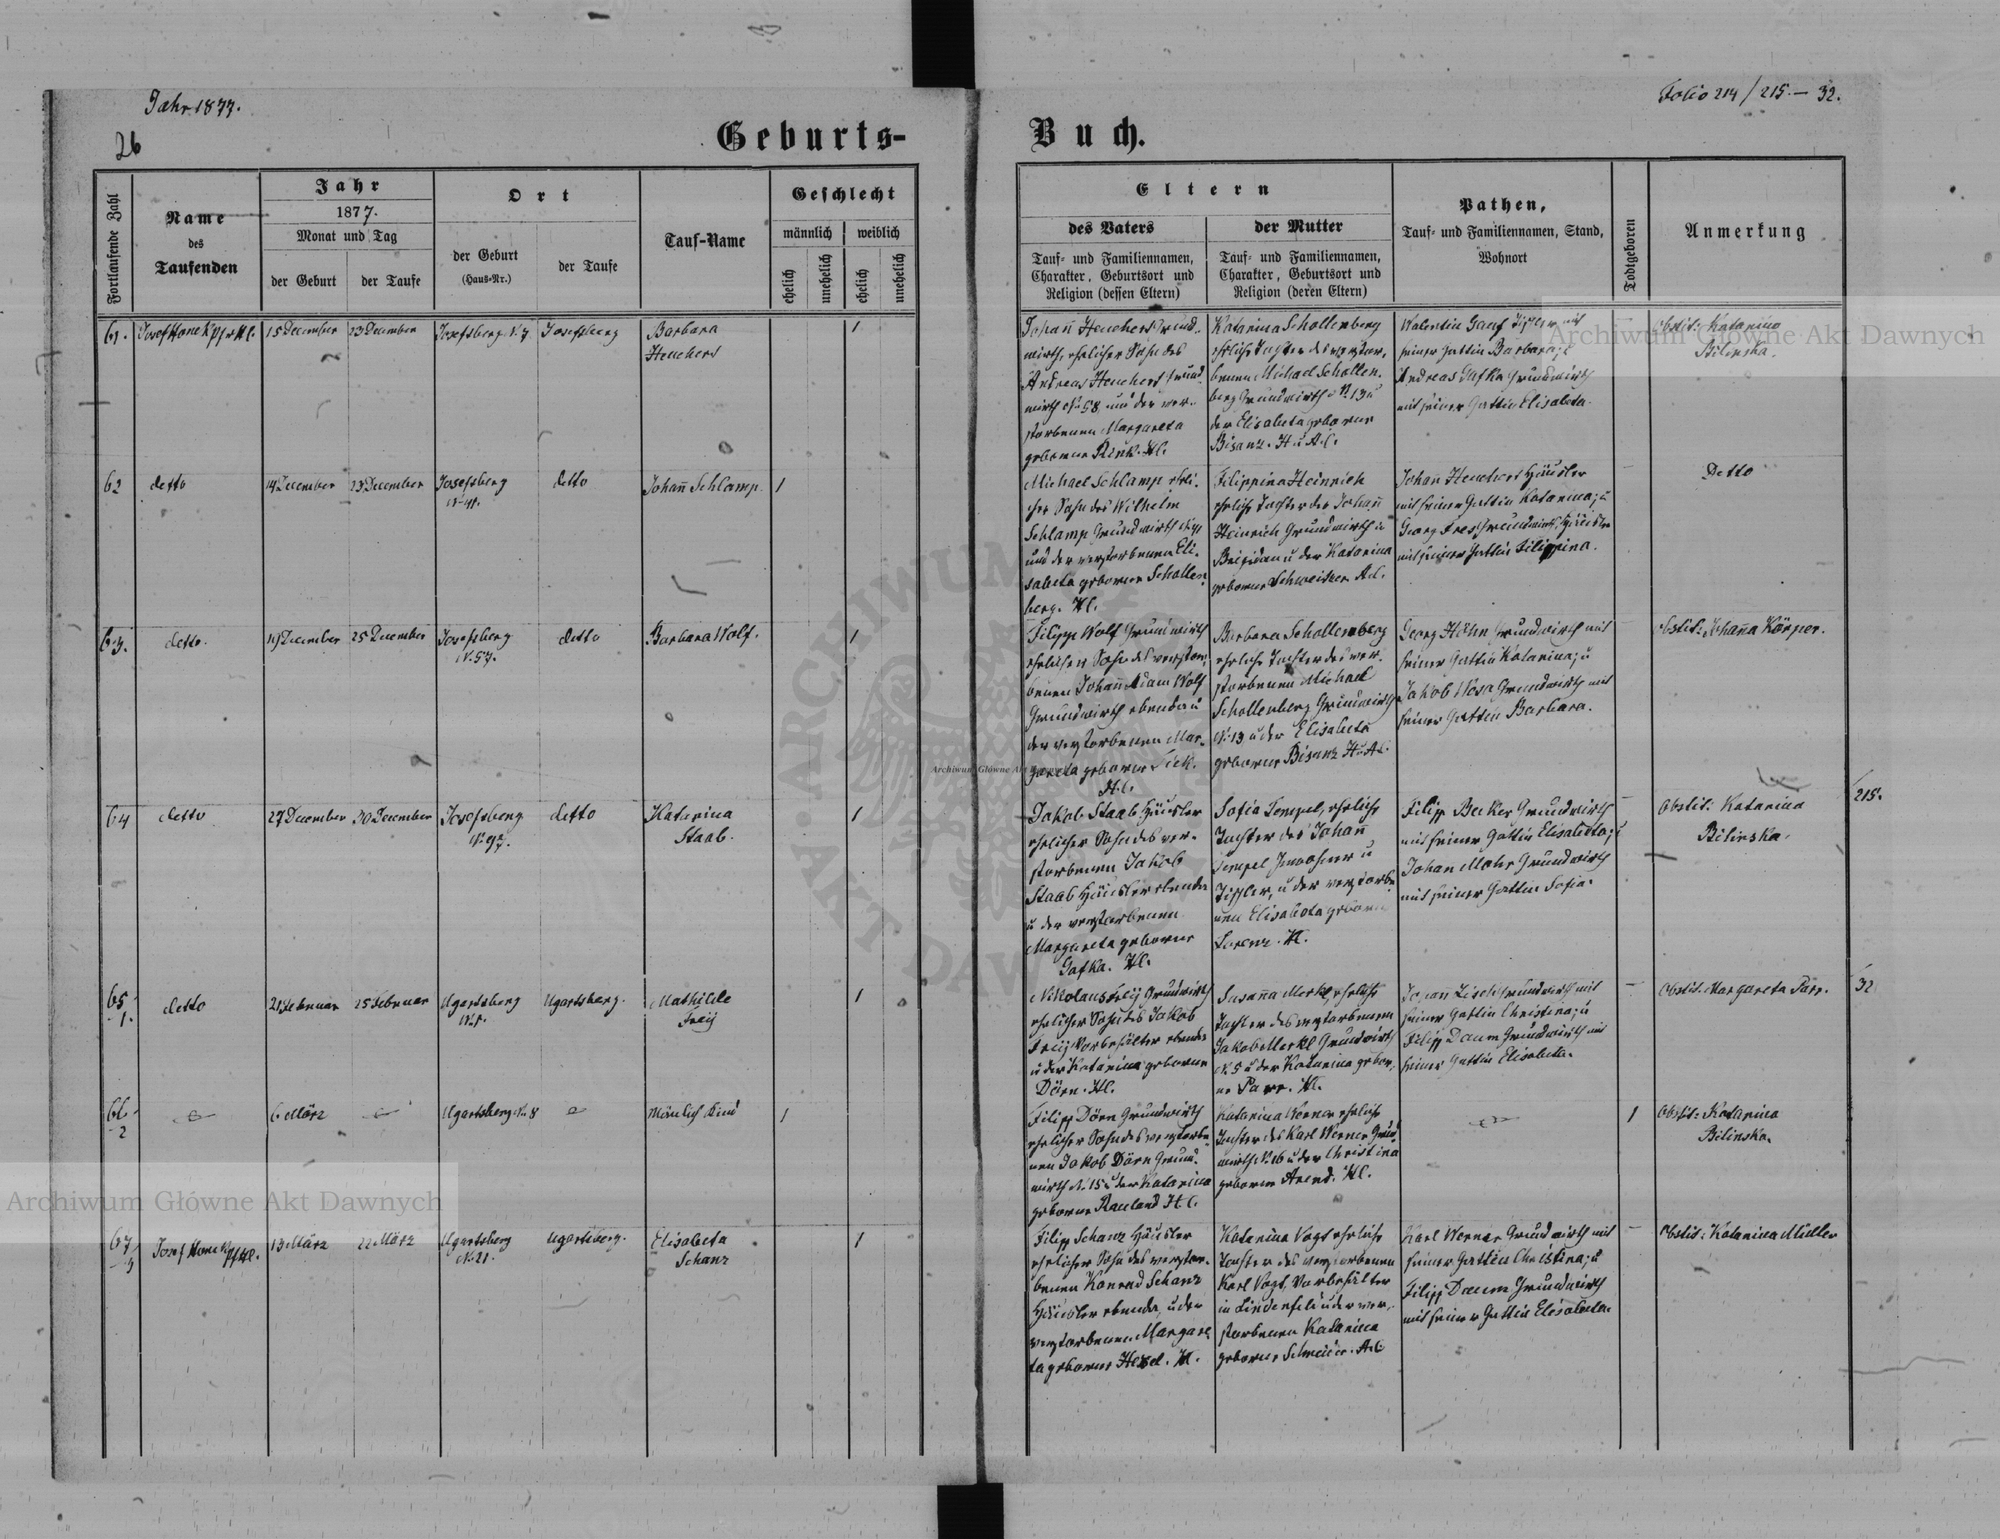 Jahr 1877.
Folio 214/215.— 32.
26
Geburts-
Buch.
Fortlaufende Zahl
Name
des
Taufenden
Jahr
1877.
Monat und Tag
der Geburt
der Taufe
Ort
der Geburt
(Haus-Nr.)
der Taufe
Tauf-Name
Geschlecht
männlich
weiblich
ehelich
unehelich
ehelich
unehelich
Eltern
des Vaters
Tauf- und Familiennamen,
Charakter, Geburtsort und
Religion (dessen Eltern)
der Mutter
Tauf- und Familiennamen,
Charakter, Geburtsort und
Religion (deren Eltern)
Pathen,
Tauf- und Familiennamen, Stand,
Wohnort
Todtgeboren
Anmerkung
61.
15 December
23 December
Josefsberg N. 7
Josefsberg
Barbara
Heuchert
1
Johann Heuchert Grund-
wirth, ehelicher Sohn des
Andreas Heuchert Grund-
wirth N. 58 und der ver-
storbenen Margareta
geborene Rink. H.C.
Katarina Schollenberg
eheliche Tochter des verstor-
benen Michael Schollen-
berg Grundwirth N. 13 u
der Elisabeta geborene
Bisanz. H. u A.C.
Valentin Ganz mit
seiner Gattin Barbara; u
Andreas Gafka Grundwirth
mit seiner Gattin Elisabeta.
Obstit: Katarina
Bilinska.
62
detto
14 December
23 December
Josefsberg
N. 41.
detto
Johann Schlamp.
1
Michael Schlamp eheli-
cher Sohn des Wilhelm
Schlamp Grundwirth
und der verstorbenen Eli-
sabeta geborene Schollen-
berg. H.C.
Filippina Heinrich
eheliche Tochter des Johann
Heinrich Grundwirth in
Brigidau u der Katarina
geborene Schweitzer A.C.
Johann Heuchert Häusler
mit seiner Gattin Katarina; u
Georg Häusler
mit seiner Gattin Filippina.
Detto
63.
detto.
19 December
25 December
Josefsberg
N. 57.
detto
Barbara Wolf.
1
Filipp Wolf Grundwirth
ehelicher Sohn des verstor-
benen Johann Adam Wolf
Grundwirth ebenda u
der verstorbenen Mar-
gareta geborene
H.C.
Barbara Schollenberg
eheliche Tochter des ver-
storbenen Michael
Schollenberg Grundwirth
N. 13 u der Elisabeta
geborene Bisanz H. u A.C.
Georg Höhn Grundwirth mit
seiner Gattin Katarina; u
Jakob Grundwirth mit
seiner Gattin Barbara.
Obstit: Johanna Körper.
64
detto
27 December
30 December
Josefsberg
N. 97.
detto
Katarina
Staab.
1
Jakob Staab Häusler
ehelicher Sohn des ver-
storbenen Jakob
Staab Häusler ebenda
u der verstorbenen
Margareta geborene
Gafka. H.C.
Sofia Sempel, eheliche
Tochter des Johann
Sempel Inwohner u
Tischler, u der verstorbe-
nen Elisabeta geborene
Lorenz. H.C.
Filipp Becker Grundwirth
mit seiner Gattin Elisabeta; u
Johan Mohr Grundwirth
mit seiner Gattin Sofia.
Obstit: Katarina
Bilinska.
215.
65
1.
detto
21 Februar
25 Februar
Ugartsberg
N. 1.
Ugartsberg.
Mathilde
Freij
1
Nikolaus Freij Grundwirth
ehelicher Sohn des Jakob
Freij Vorbehälter ebenda
u der Katarina geborene
Dörn. H.C.
Susanna Merkl, eheliche
Tochter des verstorbenen
Jakob Merkl Grundwirth
N. 5 u der Katarina gebor-
ne Parr. H.C.
Johann Zisch Grundwirth mit
seiner Gattin Christina; u
Filipp Daum Grundwirth mit
seiner Gattin Elisabeta.
Obstit. Margareta Parr.
32
66
2
6 März
Ugartsberg N. 8
Männlich Kind
1
Filipp Dörn Grundwirth
ehelicher Sohn des verstorbe-
nen Jakob Dörn Grund-
wirth N. 15 u der Katarina
geborene Rauland H.C.
Katarina Werner eheliche
Tochter des Karl Werner Grund-
wirth N. 16 u der Christina
geborene Arend. H.C.
1
Obstit: Katarina
Bilinska.
67
3
13 März
22 März
Ugartsberg
N. 21.
Ugartsberg.
Elisabeta
Schanz
1
Filipp Schanz Häusler
ehelicher Sohn des verstor-
benen Konrad Schanz
Häusler ebenda, u der
verstorbenen Margare-
ta geborene Hexel. H.C.
Katarina Vogt eheliche
Tochter des verstorbenen
Karl Vogt, Vorbehälter
in Lindenfeld u der ver-
storbenen Katarina
geborene A.C.
Karl Werner Grundwirth mit
seiner Gattin Christina; u
Filipp Daum Grundwirth
mit seiner Gattin Elisabeta
Obstit: Katarina Müller
Archiwum Główne Akt Dawnych
Archiwum Główne Akt Dawnych